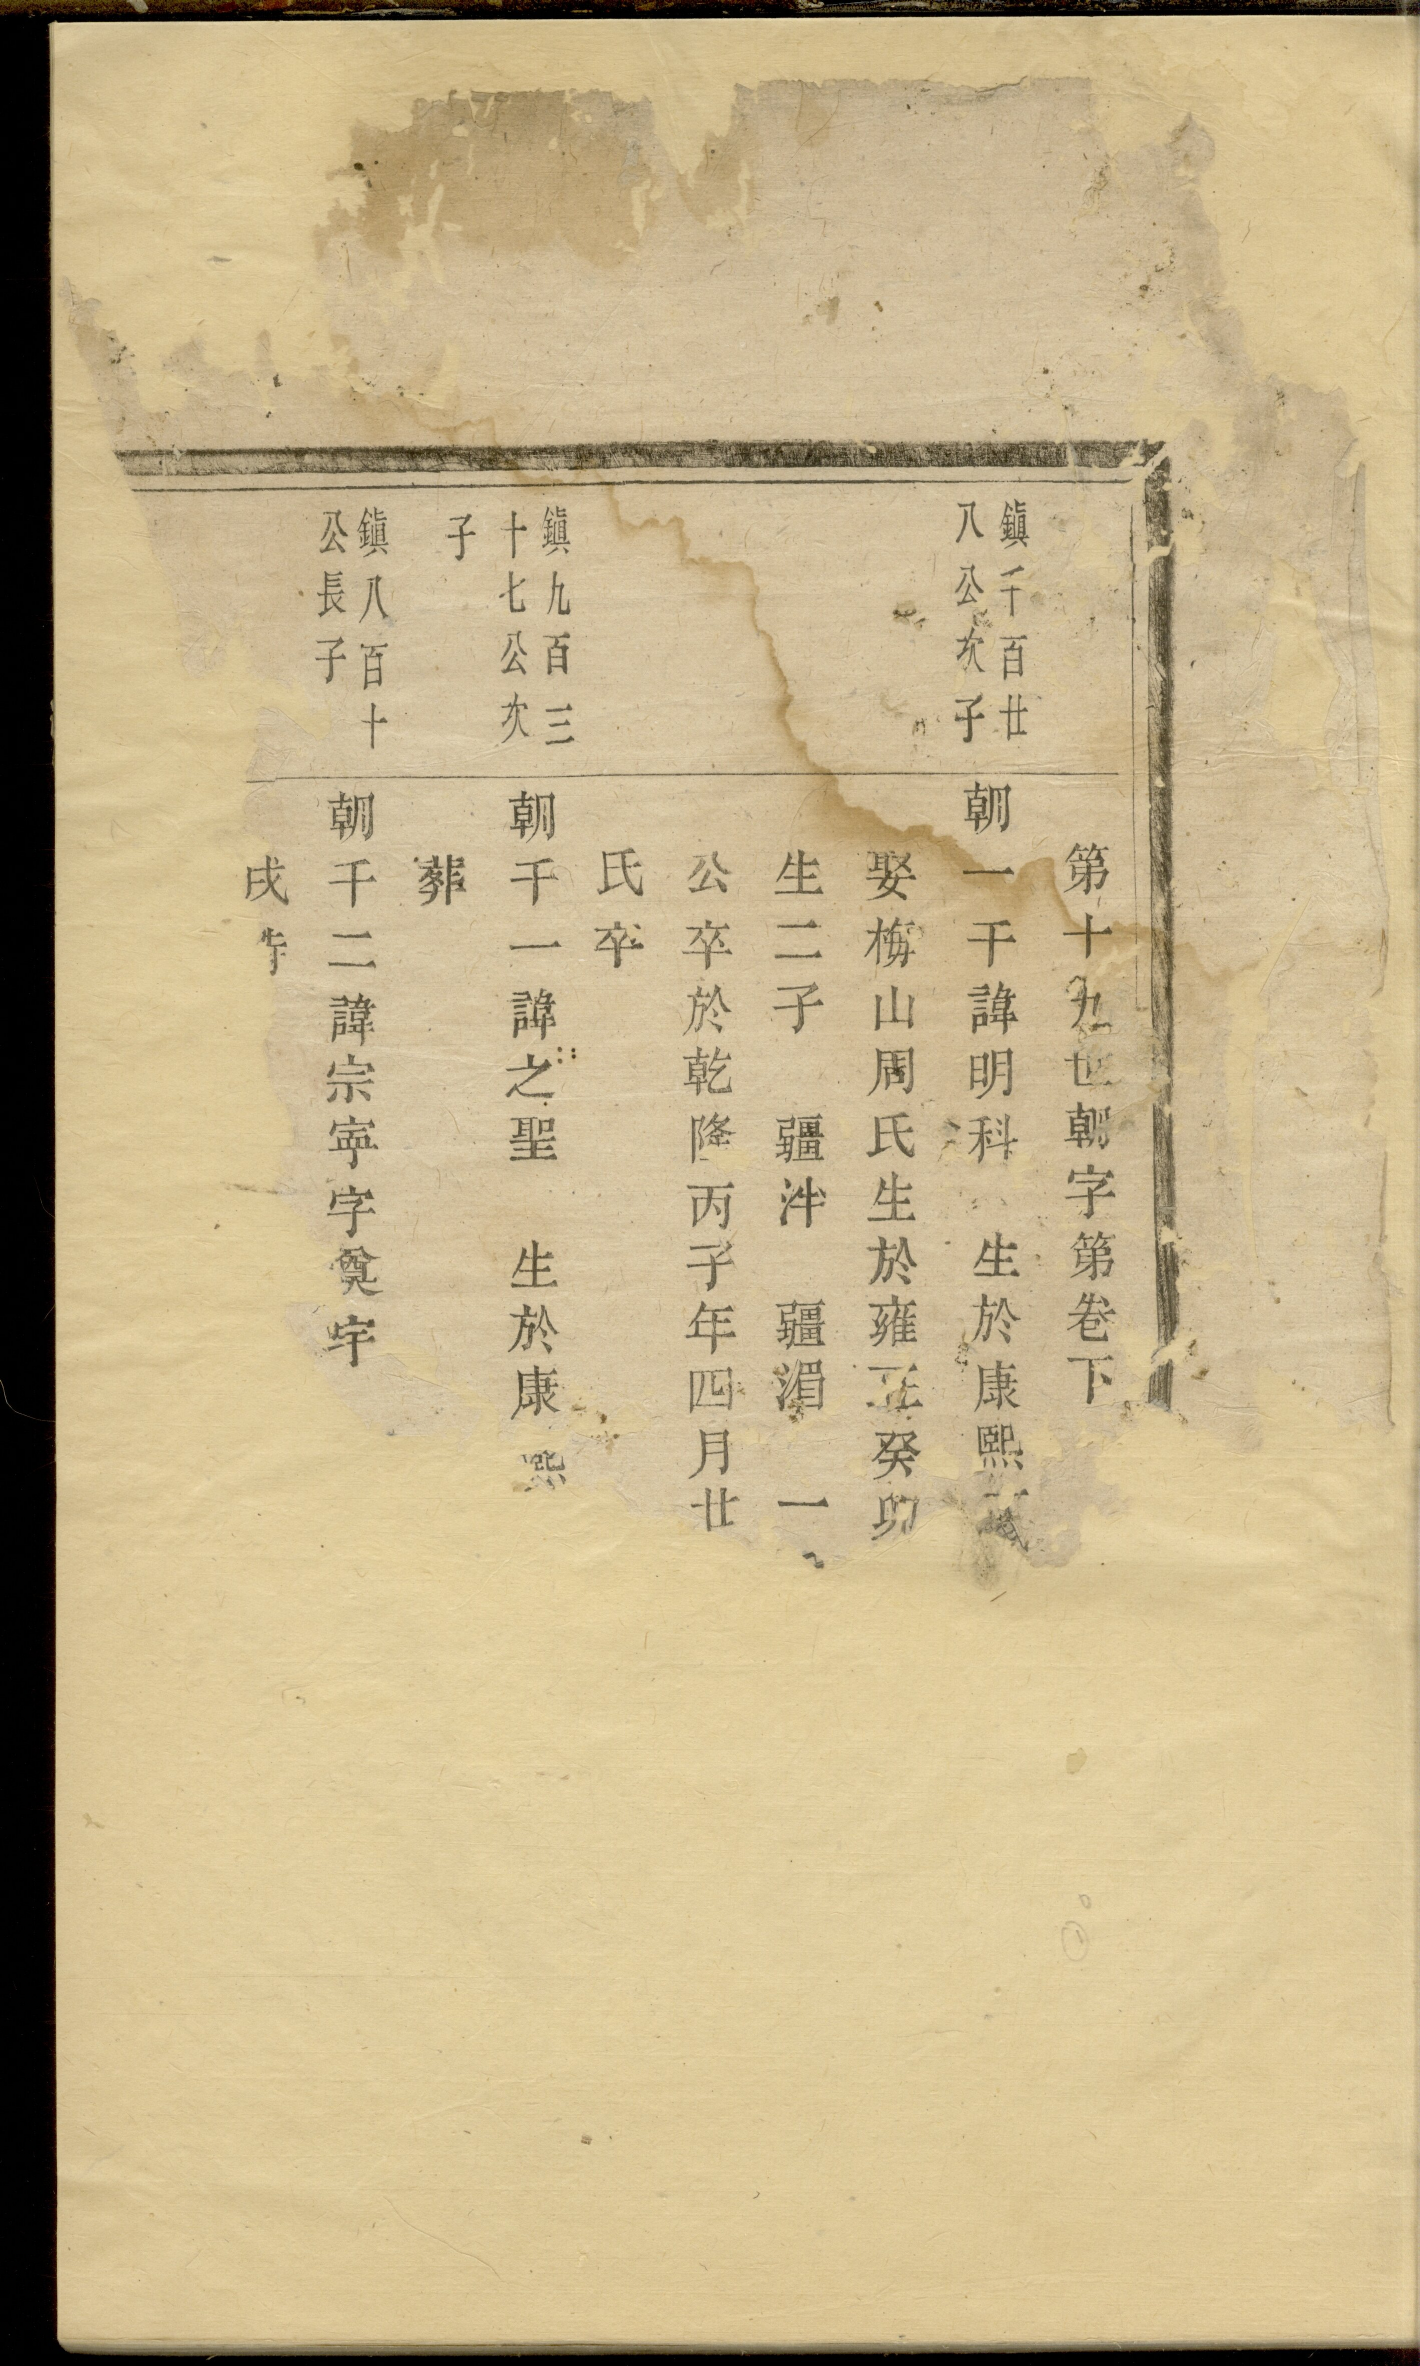 第十九世朝字第卷下
鎮千百廿
八公次子
朝一千諱明科 生於康熙
娶梅山周氏生於雍正癸卯
生二子 疆泮 疆湄 一
公卒於乾隆丙子年四月廿
氏卒
鎮九百三
十七公次
子
朝千一諱之聖 生於康熙
葬
鎮八百十
公長子
朝千二諱宗寧字奠宇
戌